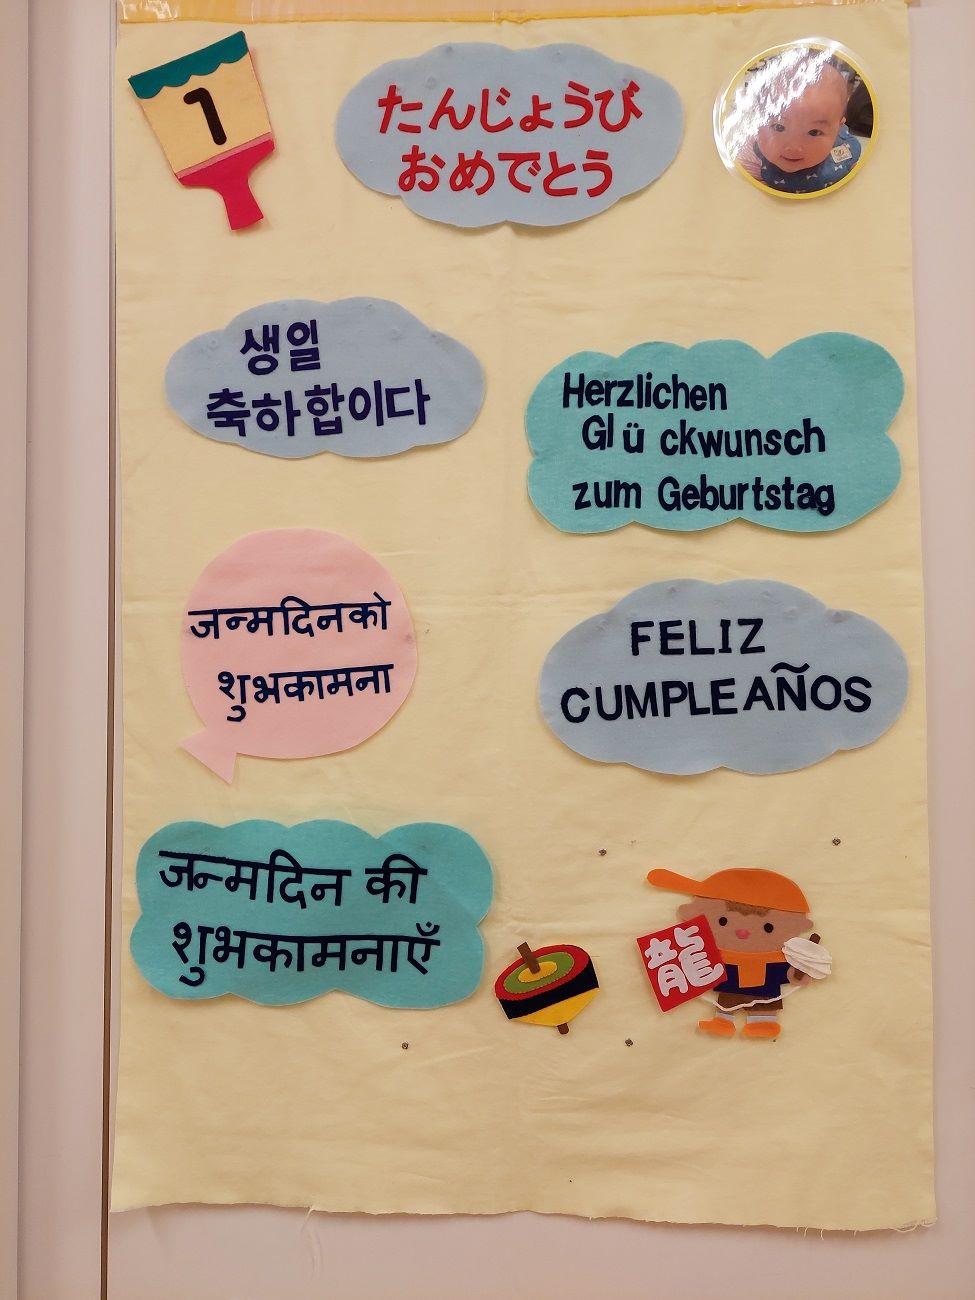 1
たんじょうび
おめでとう
생일
축하합이다
Herzlichen
Glückwunsch
zum Geburtstag
जन्मदिनको
शुभकामना
FELIZ
CUMPLEAÑOS
जन्मदिन की
शुभकामनाएँ
龍